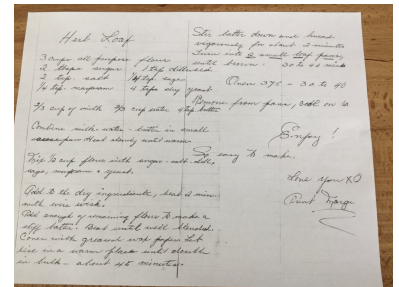 Herb Loaf
3 cups all purpose flour
2 tbsps sugar 1 tsp dillweed
2 tsp. salt 1/4 tsp. sage
1/4 tsp. marjoram 4 tsps dry yeast
2/3 cup of milk 2/3 cup water 4 tsp butter
Combine milk - water - butter in small
saucepan Heat slowly until warm.
Mix 1/2 cup flour with sugar - salt - dill,
sage, marjoram & yeast.
Add to the dry ingredients, beat 2 min
with wire wisk.
Add enough of remaining flour to make a
stiff batter. Beat until well blended.
Cover with greased wax paper. Let
rise in a warm place until double
in bulk - about 45 minutes.
Stir batter down and beat
vigorously for about 2 minutes
Turn into 2 small loaf pans
until brown. 30 to 40 min
Oven 375 - 30 to 40
Remove from pans, cool on
Enjoy!
So easy to make.
Love you XO
Aunt Marge